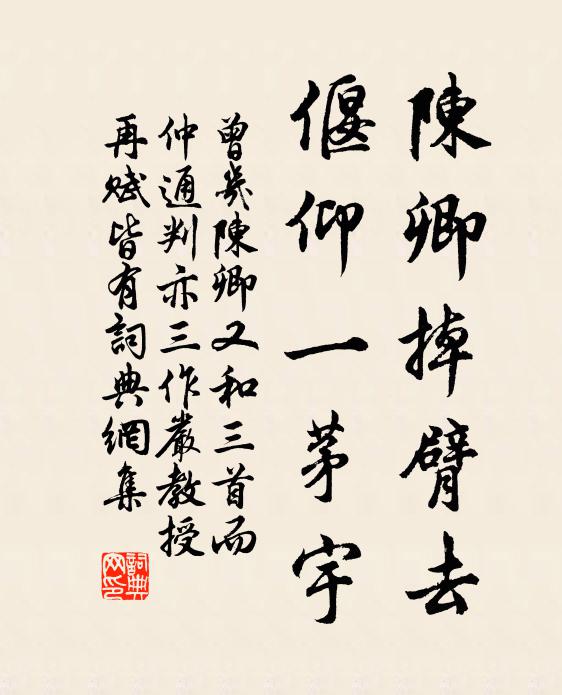 陳卿掉臂去
偃仰一茅宇
曾幾陳卿又和三首而
仲通判亦三作嚴教授
再賦皆有詞典網集
詞典网印